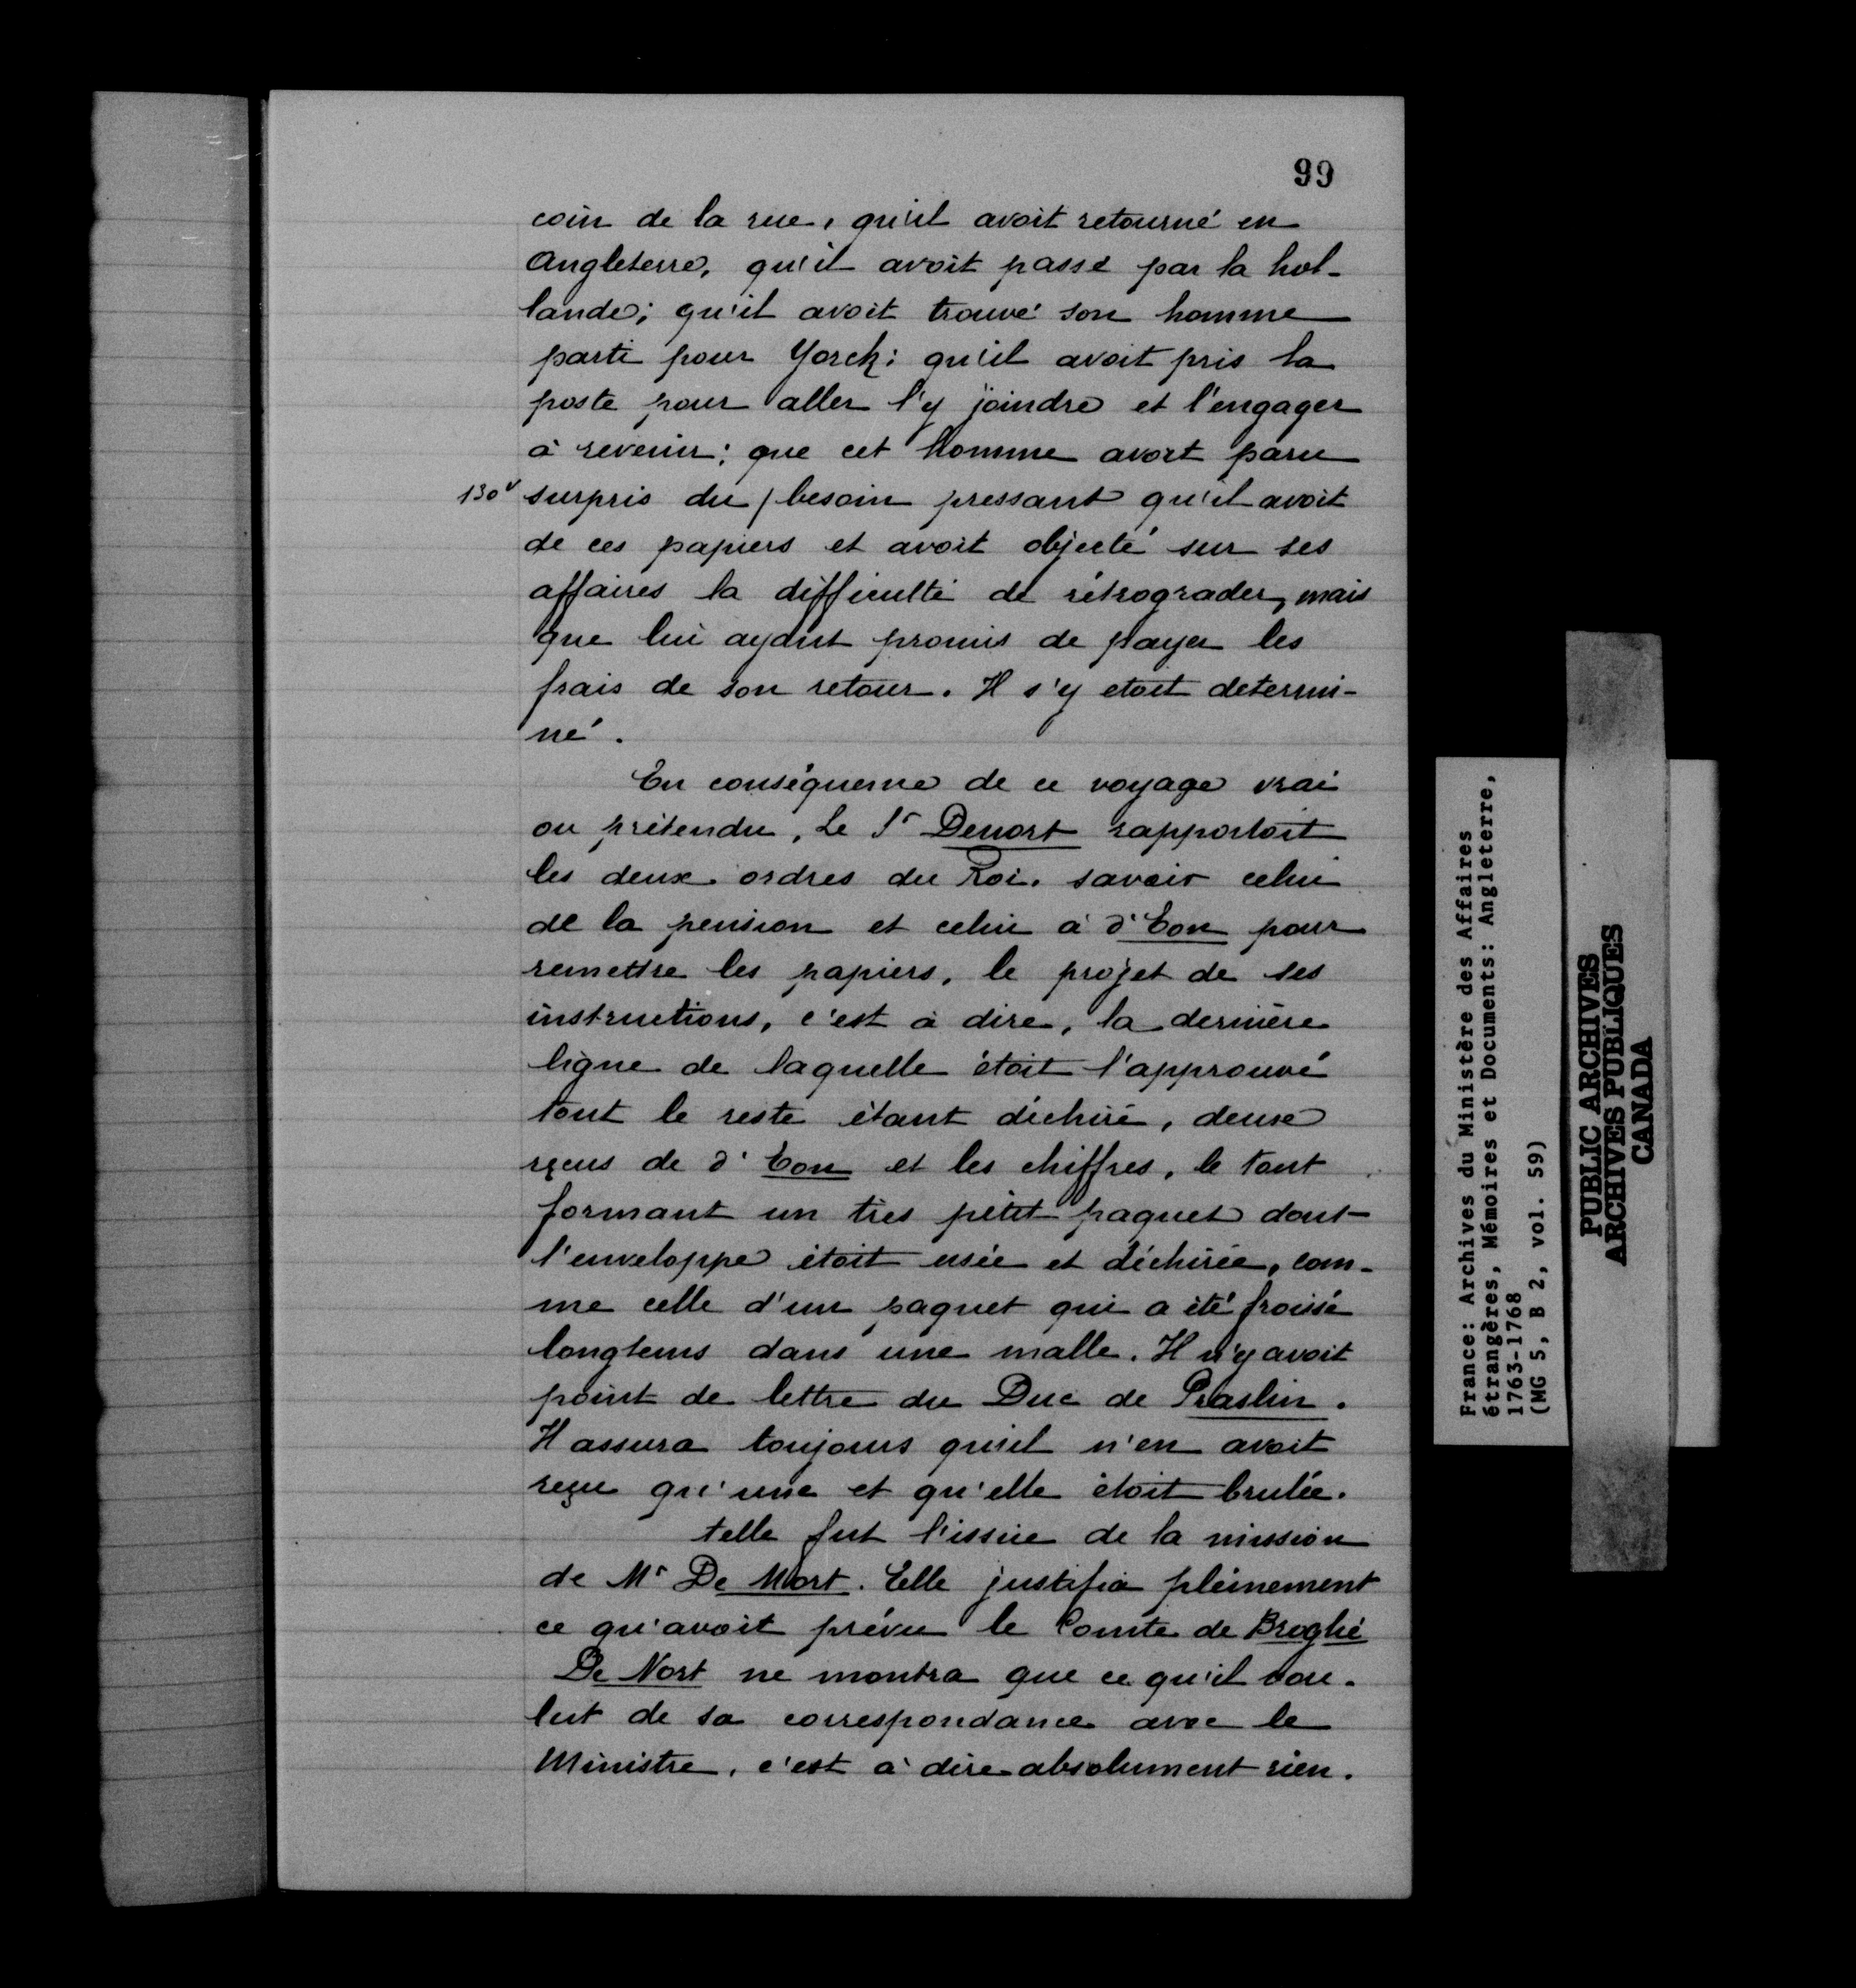 99
coin de la rue, qu'il avoit retourné en
Angleterre, qu'il avoit passé par la hol-
lande; qu'il avoit trouvé son homme
parti pour Yorck; qu'il avoit pris la
poste pour aller l'y joindre et l'engager
à revenir; que cet homme avoit paru
130v surpris du / besoin pressant qu'il avoit
de ces papiers et avoit objecté sur ses
affaires la difficulté de rétrograder, mais
que lui ayant promis de payer les
frais de son retour. Il s'y etoit determi-
né.
En conséquence de ce voyage vrai
ou prétendu, Le Sr Denort rapportoit
les deux ordres du Roi. savoir celui
de la pension et celui à d'Eon pour
remettre les papiers, le projet de ses
instructions, c'est à dire, la dernière
ligne de laquelle étoit l'approuvé
tout le reste étant déchiré, deux
reçus de d'Eon et les chiffres, le tout
formant un très petit paquet dont
l'enveloppe étoit usée et déchirée, com-
me celle d'un paquet qui a été froissé
longtems dans une malle. Il n'y avoit
point de lettre du Duc de Praslin.
Il assura toujours qu'il n'en avoit
reçu qu'une et qu'elle étoit brulée.
telle fut l'issue de la mission
de Mr De Nort. Elle justifia pleinement
ce qu'avoit prévu le Comte de Broglié
De Nort ne montra que ce qu'il vou-
lut de sa correspondance avec le
Ministre, c'est à dire absolument rien.
France: Archives du Ministère des Affaires
étrangères, Mémoires et Documents: Angleterre,
1763-1768
(MG 5, B 2, vol. 59)
PUBLIC ARCHIVES
ARCHIVES PUBLIQUES
CANADA